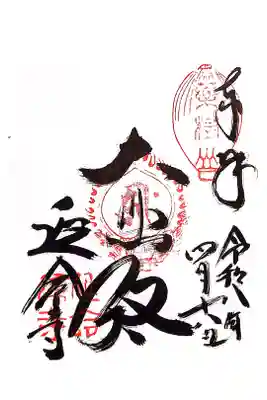 奉拝
令和八年
四月十八日
大悲殿
延命寺